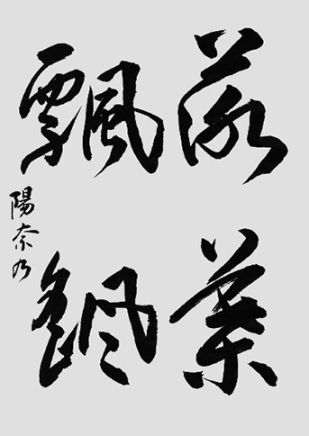 落葉
飄颻
陽奈乃